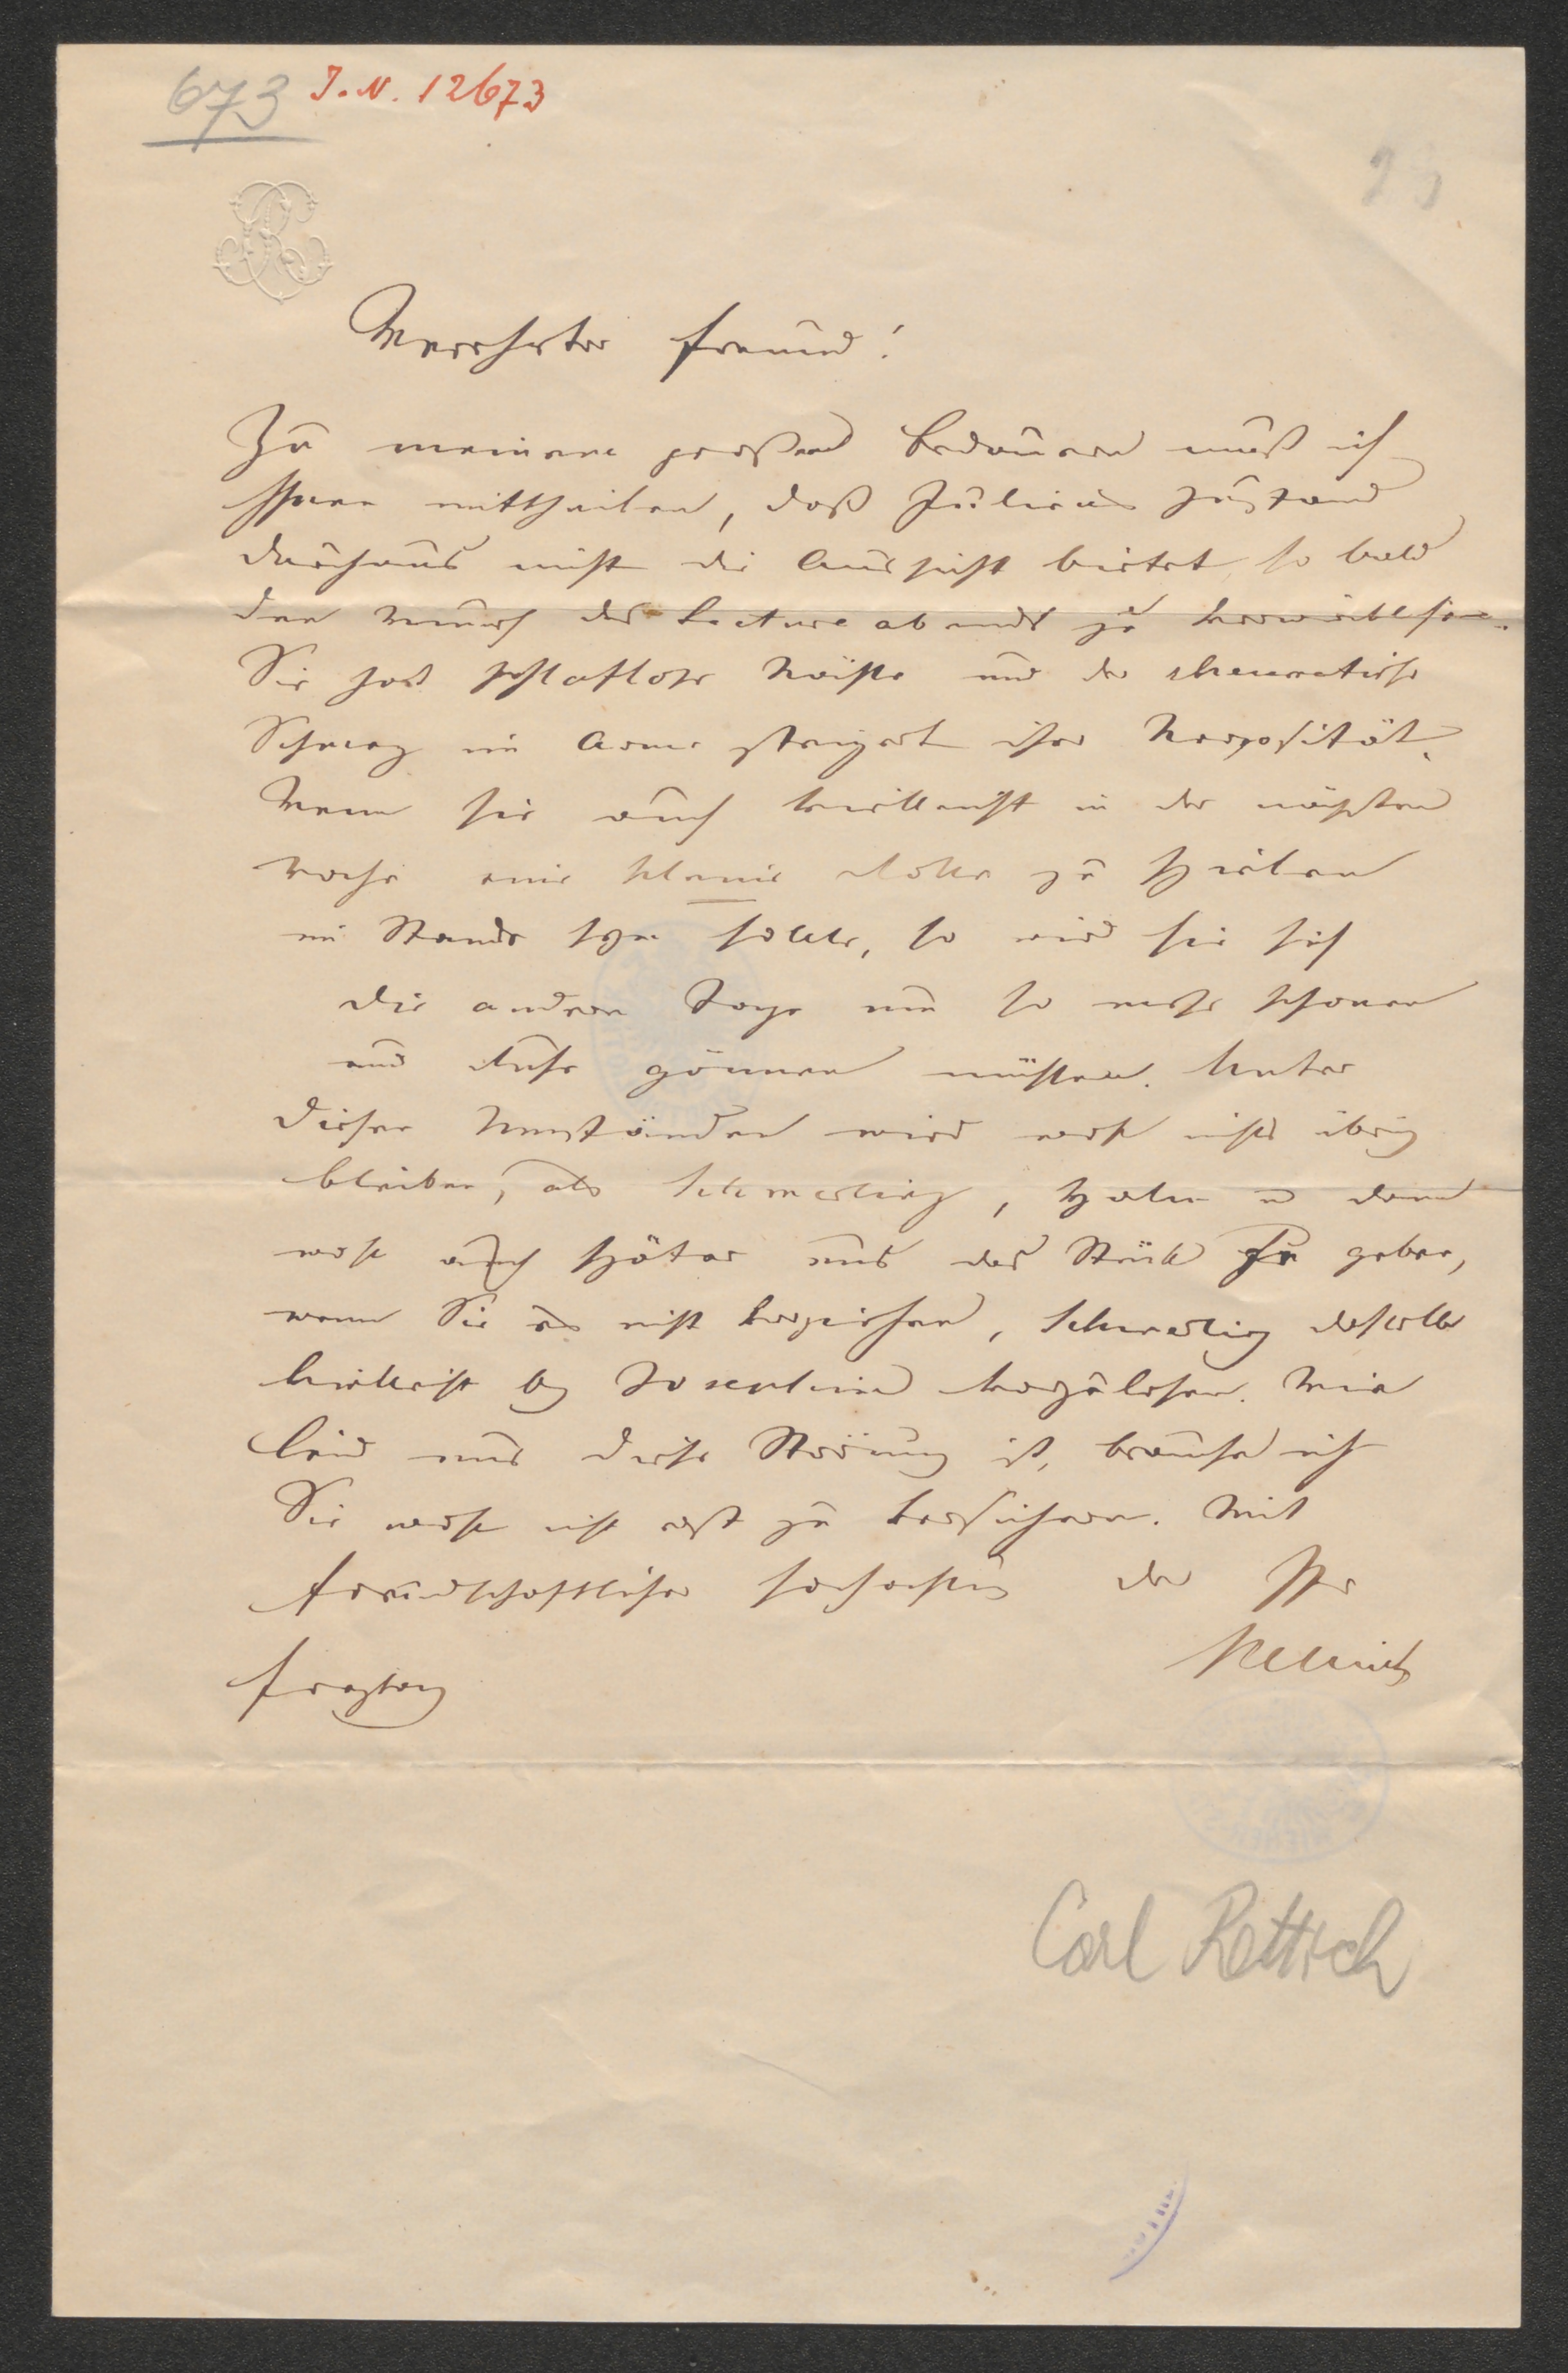 673 I.N. 12673
23
Verehrter Freund!
Zu meinem großen Bedauern muß ich
Ihnen mittheilen, daß Juliens Zustand
durchaus nicht die Aussicht bietet, so bald
den Wunsch des Lectureabends zu verwirklichen.
Sie hat schlaflose Nächte und der rheumatische
Schmerz im Arme steigert ihre Nervosität.
Wenn sie auch vielleicht in der nächsten
Woche eine kleine Rolle zu spielen
im Stande seyn sollte, so wird sie sich
die andern Tage um so mehr schonen
und Ruhe gönnen müssen. Unter
diesen Umständen wird wohl nichts übrig
bleiben, als Schmerling, Halm u dann
wohl auch später uns das Stück zu geben,
wenn Sie es nicht vorziehen, Schmerling dasselbe
vielleicht bey Josephine vorzulesen. Wie
leid uns diese Störung ist, brauche ich
Sie wohl nicht erst zu versichern. Mit
freundschaftlicher Hochachtung der Ihre
Rettich
Freytag
Carl Rettich